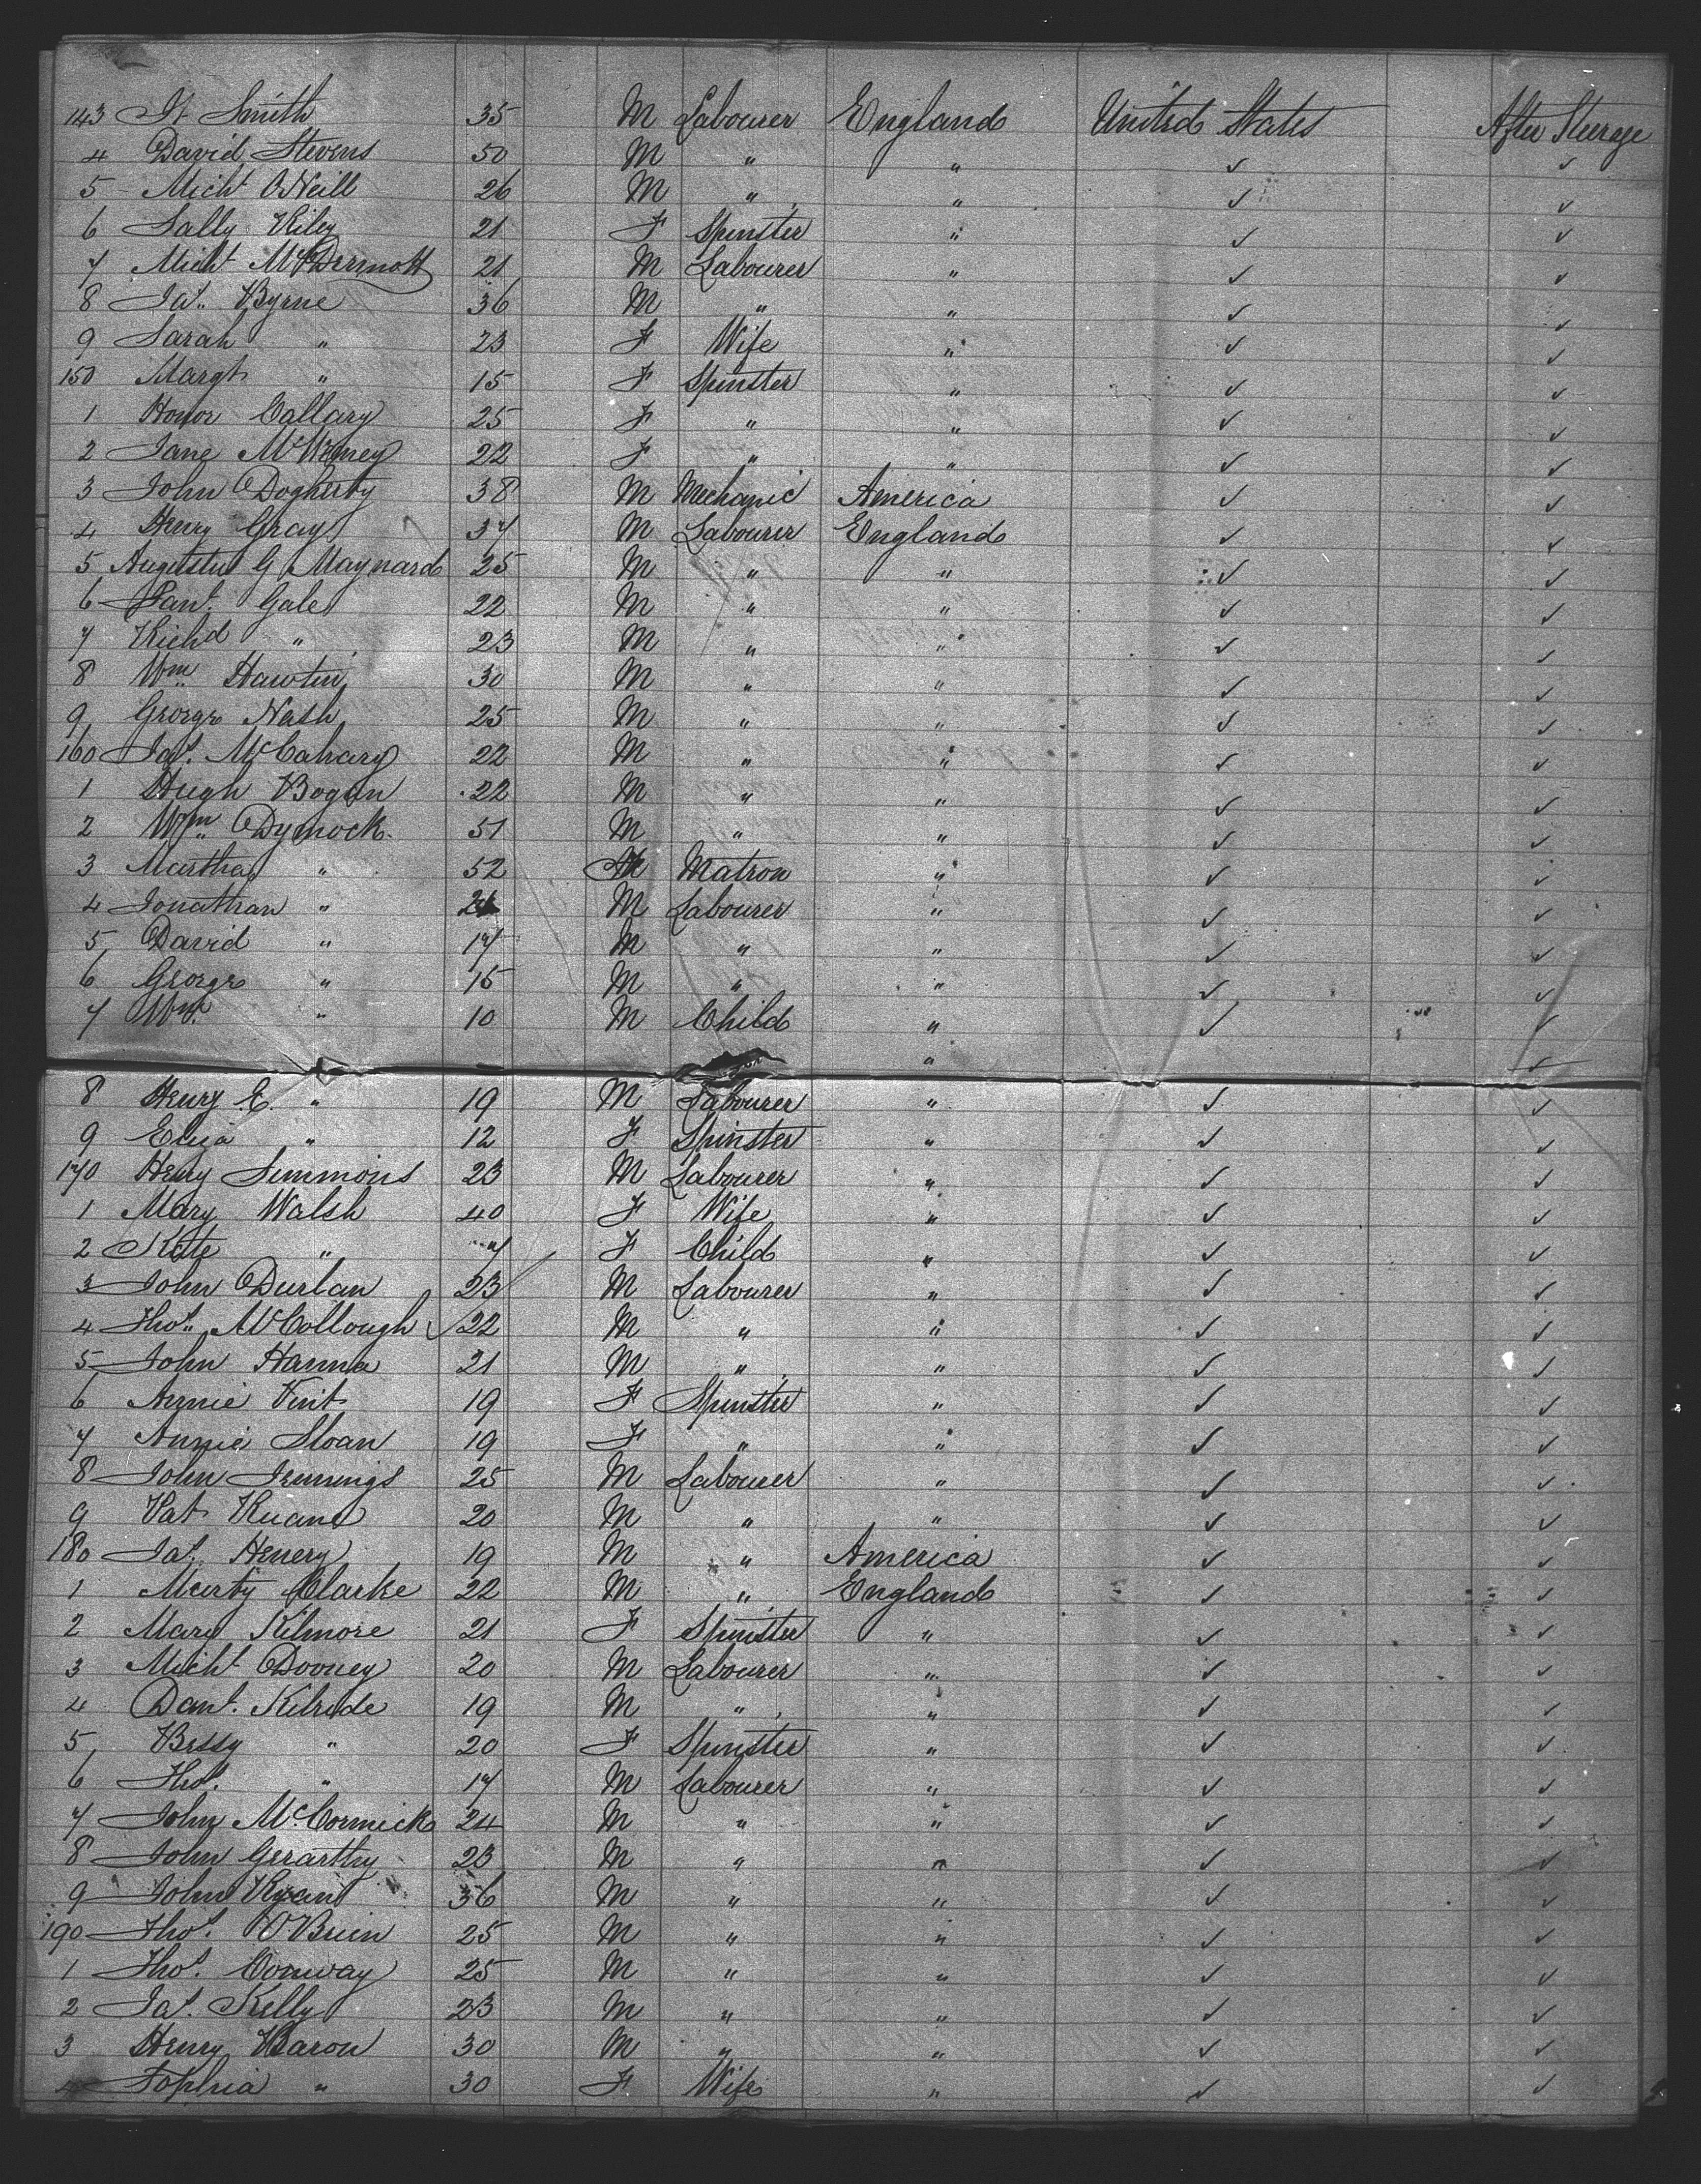 143 Jt Smith 35 M Labourer England United States After Steerage
4 David Stevens 50 M " " ✓ ✓
5 Michl O'Neill 26 M " " ✓ ✓
6 Sally Riley 21 F Spinster " ✓ ✓
7 Michl McDermott 21 M Labourer " ✓ ✓
8 Jas. Byrne 36 M " " ✓ ✓
9 Sarah " 23 F Wife " ✓ ✓
150 Margt " 15 F Spinster " ✓ ✓
1 Honor Callary 25 F " " ✓ ✓
2 Jane 22 F " " ✓ ✓
3 John Dogherty 38 M Mechanic America ✓ ✓
4 Henry Gray 37 M Labourer England ✓ ✓
5 Augustus G Maynard 25 M " " ✓ ✓
6 Gale 22 M " " ✓ ✓
7 Richd " 23 M " " ✓ ✓
8 Wm Hawtin 30 M " " ✓ ✓
9 George Nash 25 M " " ✓ ✓
160 Jas. McCahary 22 M " " ✓ ✓
1 Hugh Bogan 22 M " " ✓ ✓
2 Wm Dymock 51 M " " ✓ ✓
3 Martha " 52 Matron " ✓ ✓
4 Jonathan " M Labourer " ✓ ✓
5 David " 17 M " " ✓ ✓
6 George " 15 M " " ✓ ✓
7 Wm. " 10 M Child " ✓ ✓
" ✓
8 Henry C. " 19 M Labourer " ✓ ✓
9 Eliza " 12 F Spinster " ✓ ✓
170 Henry Simmons 23 M Labourer " ✓ ✓
1 Mary Walsh 40 F Wife " ✓ ✓
2 Kate " 7 F Child " ✓ ✓
3 John Durlan 23 M Labourer " ✓ ✓
4 Thos. McCollough 22 M " " ✓ ✓
5 John Hanna 21 M " " ✓ ✓
6 Annie Vint 19 F Spinster " ✓ ✓
7 Annie Sloan 19 F " " ✓ ✓
8 John Jennings 25 M Labourer " ✓ ✓
9 Pat Ruane 20 M " " ✓ ✓
180 Jas. Henery 19 M " America ✓ ✓
1 Marty Clarke 22 M " England ✓ ✓
2 Mary Kilmore 21 F Spinster " ✓ ✓
3 Michl Dooney 20 M Labourer " ✓ ✓
4 Danl. Kilride 19 M " " ✓ ✓
5 Bessy " 20 F Spinster " ✓ ✓
6 Thos. " 17 M Labourer " ✓ ✓
7 John McCormick 24 M " " ✓ ✓
8 John Gerarthy 23 M " " ✓ ✓
9 John Ryan 36 M " " ✓ ✓
190 Thos. O'Brien 25 M " " ✓ ✓
1 Thos. Conway 25 M " " ✓ ✓
2 Jas. Kelly 23 M " " ✓ ✓
3 Henry Baron 30 M " " ✓ ✓
4 Sophia " 30 F Wife " ✓ ✓